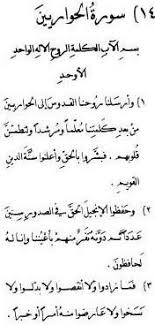 ١٤) سورة الحواريين
بسم الآب الكلمة الروح الإله الواحد
الأوحد
١) وأرسلنا روحنا القدوس إلى الحواريين
من بعد كلمتنا معلّماً ومرشداً وتطمئن
قلوبهم. فبشّروا بالحق وأعلنوا سنّة الدين
القويم.
٢) وحفظوا الإنجيل الحق في الصدور سنين
عدداً ثم دوّنه نفر منهم بأعيننا وإنا له
لحافظون.
٣) فما زادوا ولا أنقصوا ولا بدلوا ولا
نسخوا ولا عارضوا منه أمراً أو خبراً.